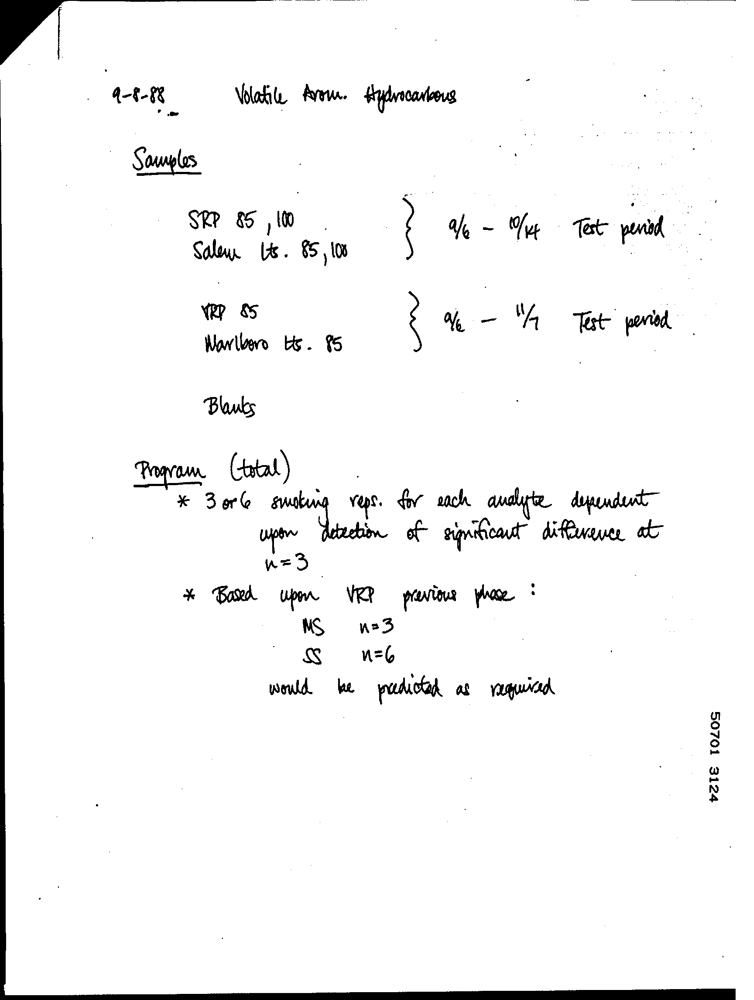 9-8-88 Volatile Arom. Hydrocarbons
Samples
SRP 85, 100 } 9/6 - 10/14 Test period
Salem Lts. 85, 100
VRP 85 } 9/6 - 11/7 Test period
Marlboro Lts. 85
Blanks
Program (total)
* 3 or 6 smoking reps. for each analyte dependent
upon detection of significant difference at
n=3
* Based upon VRP previous phase :
MS n=3
SS n=6
would be predicted as required
50701 3124